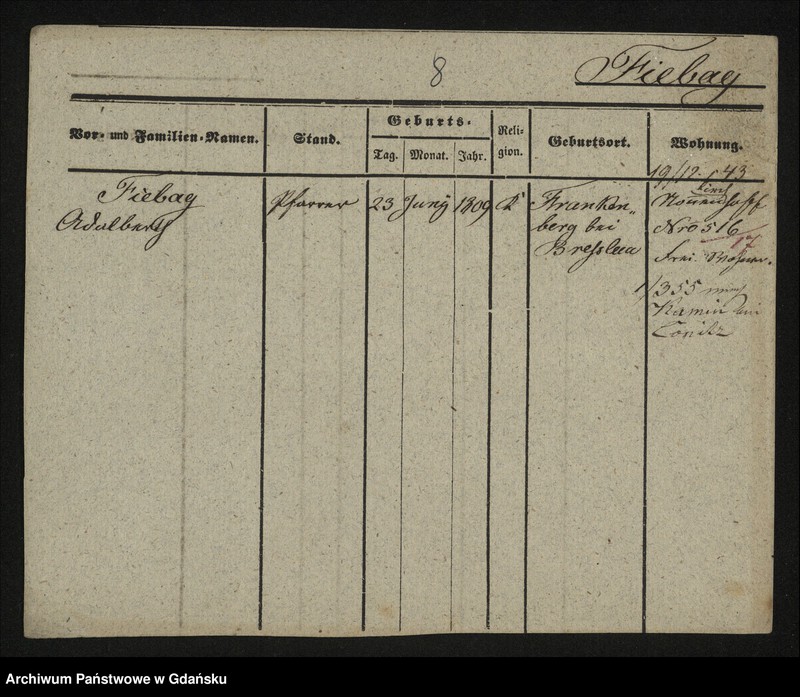 8
Fiebag
Vor- und Familien-Namen.
Stand.
Geburts-
Tag.
Monat.
Jahr.
Reli-
gion.
Geburtsort.
Wohnung.
Fiebag
Adalberth
Pfarrer
23
Juny
1809
K
Franken„
berg bei
Bresslau
19/12. 43
Nro 516
17
frei. Wohner.
1/3 55
Kamin bei
Conitz
Archiwum Państwowe w Gdańsku